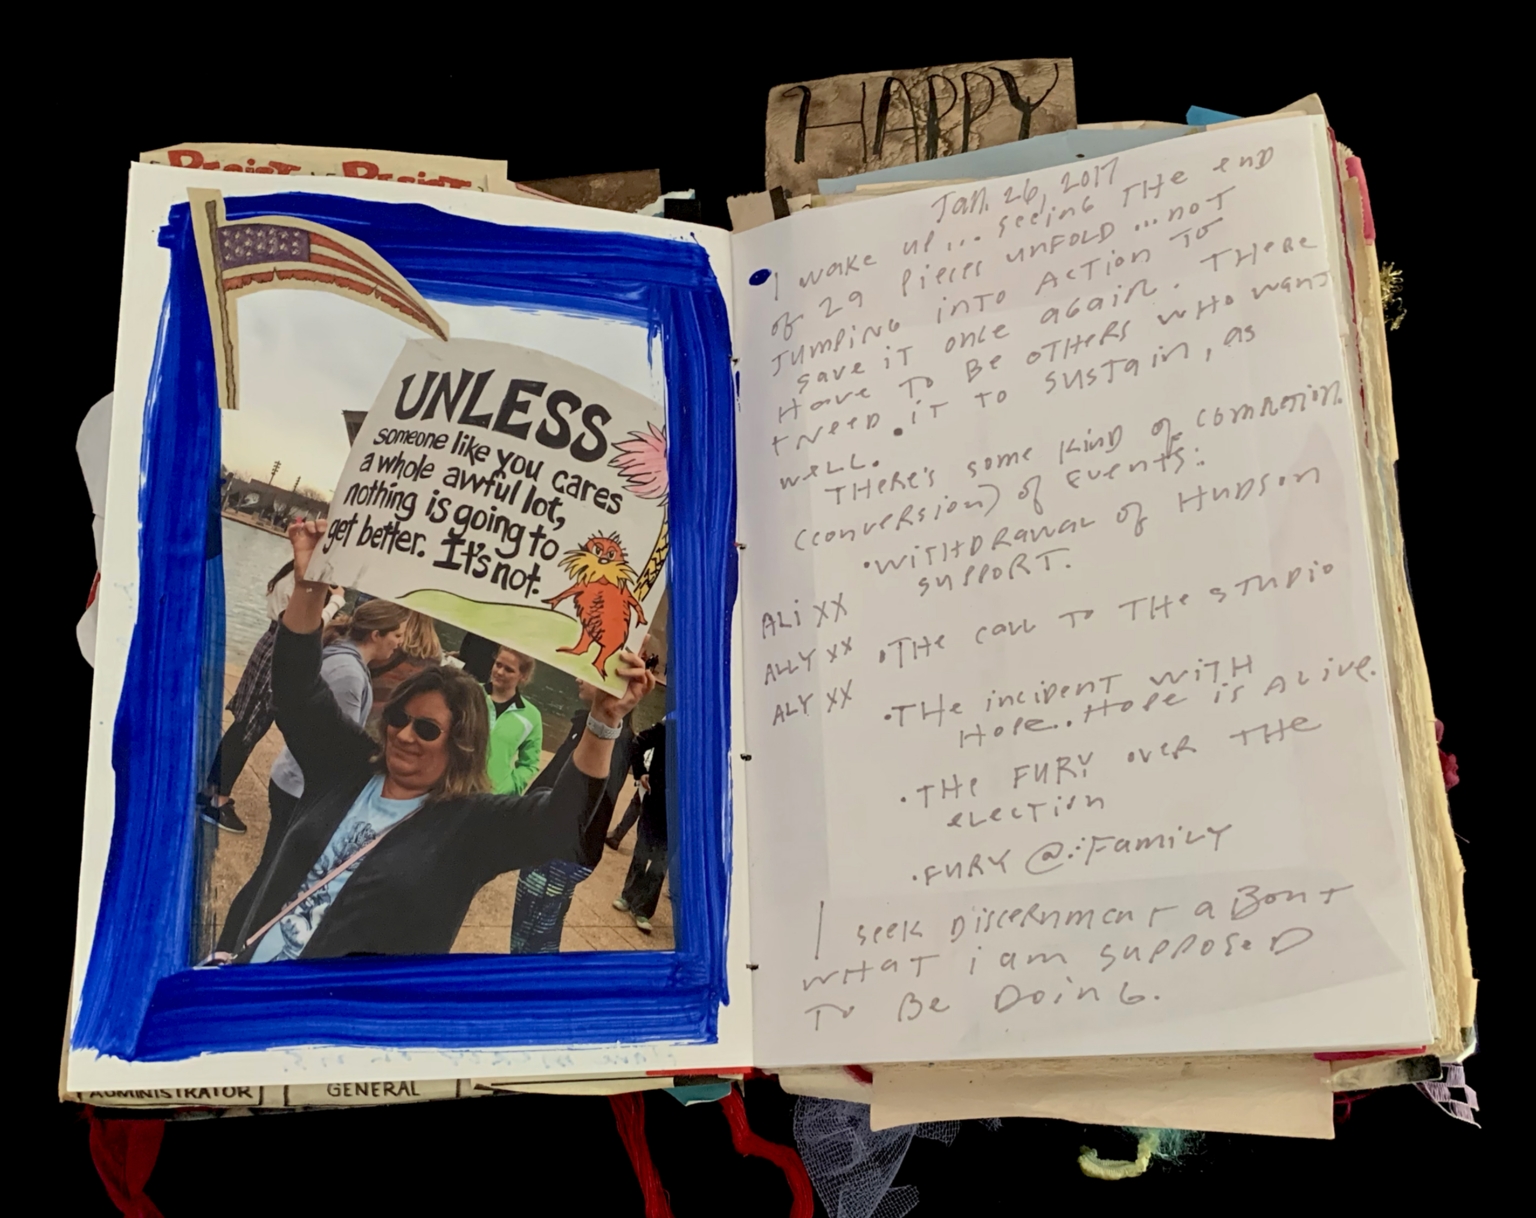 Resist Resist
HAPPY
UNLESS
someone like you cares
a whole awful lot,
nothing is going to
get better. It's not.
ADMINISTRATOR
GENERAL
Jan. 26, 2017
I wake up... seeing THE end
of 29 Pieces unFOLD... noT
Jumping inTo AcTion To
save iT once again. THERE
Have To Be oTHeRs WHo wanT
+ NeeD iT To SusTain, as
well.
THere's some KinD of
(conversion) of Events:
• WITHDRAWAL of HuDson
suppoRT.
ALi XX
ALLY XX
ALY XX
• THE call To THe sTuDio
• THe inciDenT WiTH
Hope.. Hope is ALive.
• THE FURY oveR THE
eLecTion
• FURY @ Family
I seek DiscernmenT aBouT
wHaT i am supposeD
To Be Doing.